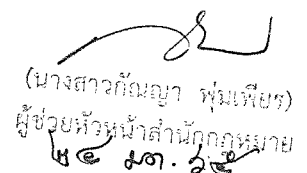 (นางสาวกัณญา พุ่มเพียร)
ผู้ช่วยหัวหน้าสำนักกฎหมาย
๒๔ มค. ๖๕